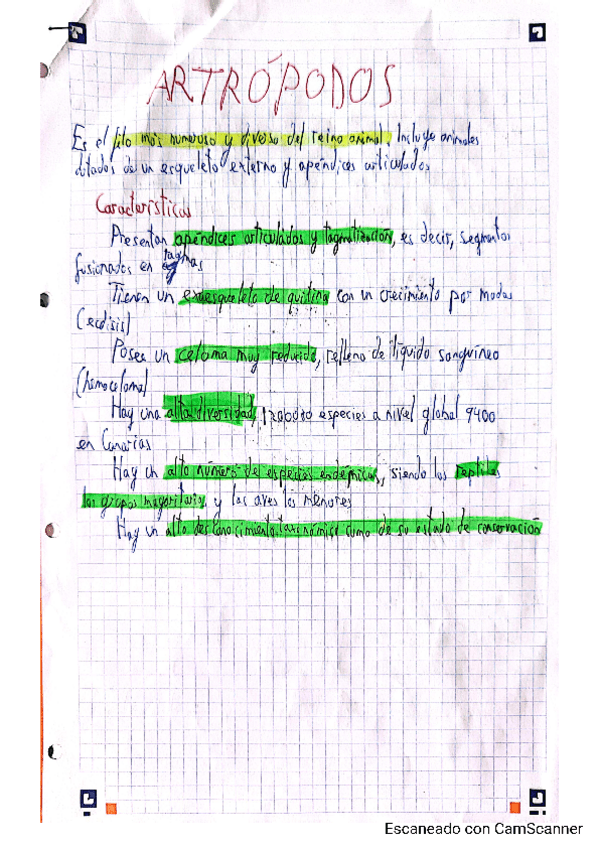 ARTRÓPODOS
Es el filo más numeroso y diverso del reino animal. Incluye animales
dotados de un esqueleto externo y apéndices articulados
Características
Presentan apéndices articulados y tagmatización, es decir, segmentos
fusionados en tagmas
Tienen un exoesqueleto de quitina con un crecimiento por mudas
(ecdisis)
Posee un celoma muy reducido, relleno de líquido sanguíneo
(hemoceloma)
Hay una alta diversidad, especies a nivel global 9400
en Canarias
Hay un alto número de especies endémicas, siendo los reptiles
los grupos mayoritarios y las aves los menores
Hay un alto desconocimiento taxonómico como de su estado de conservación
Escaneado con CamScanner